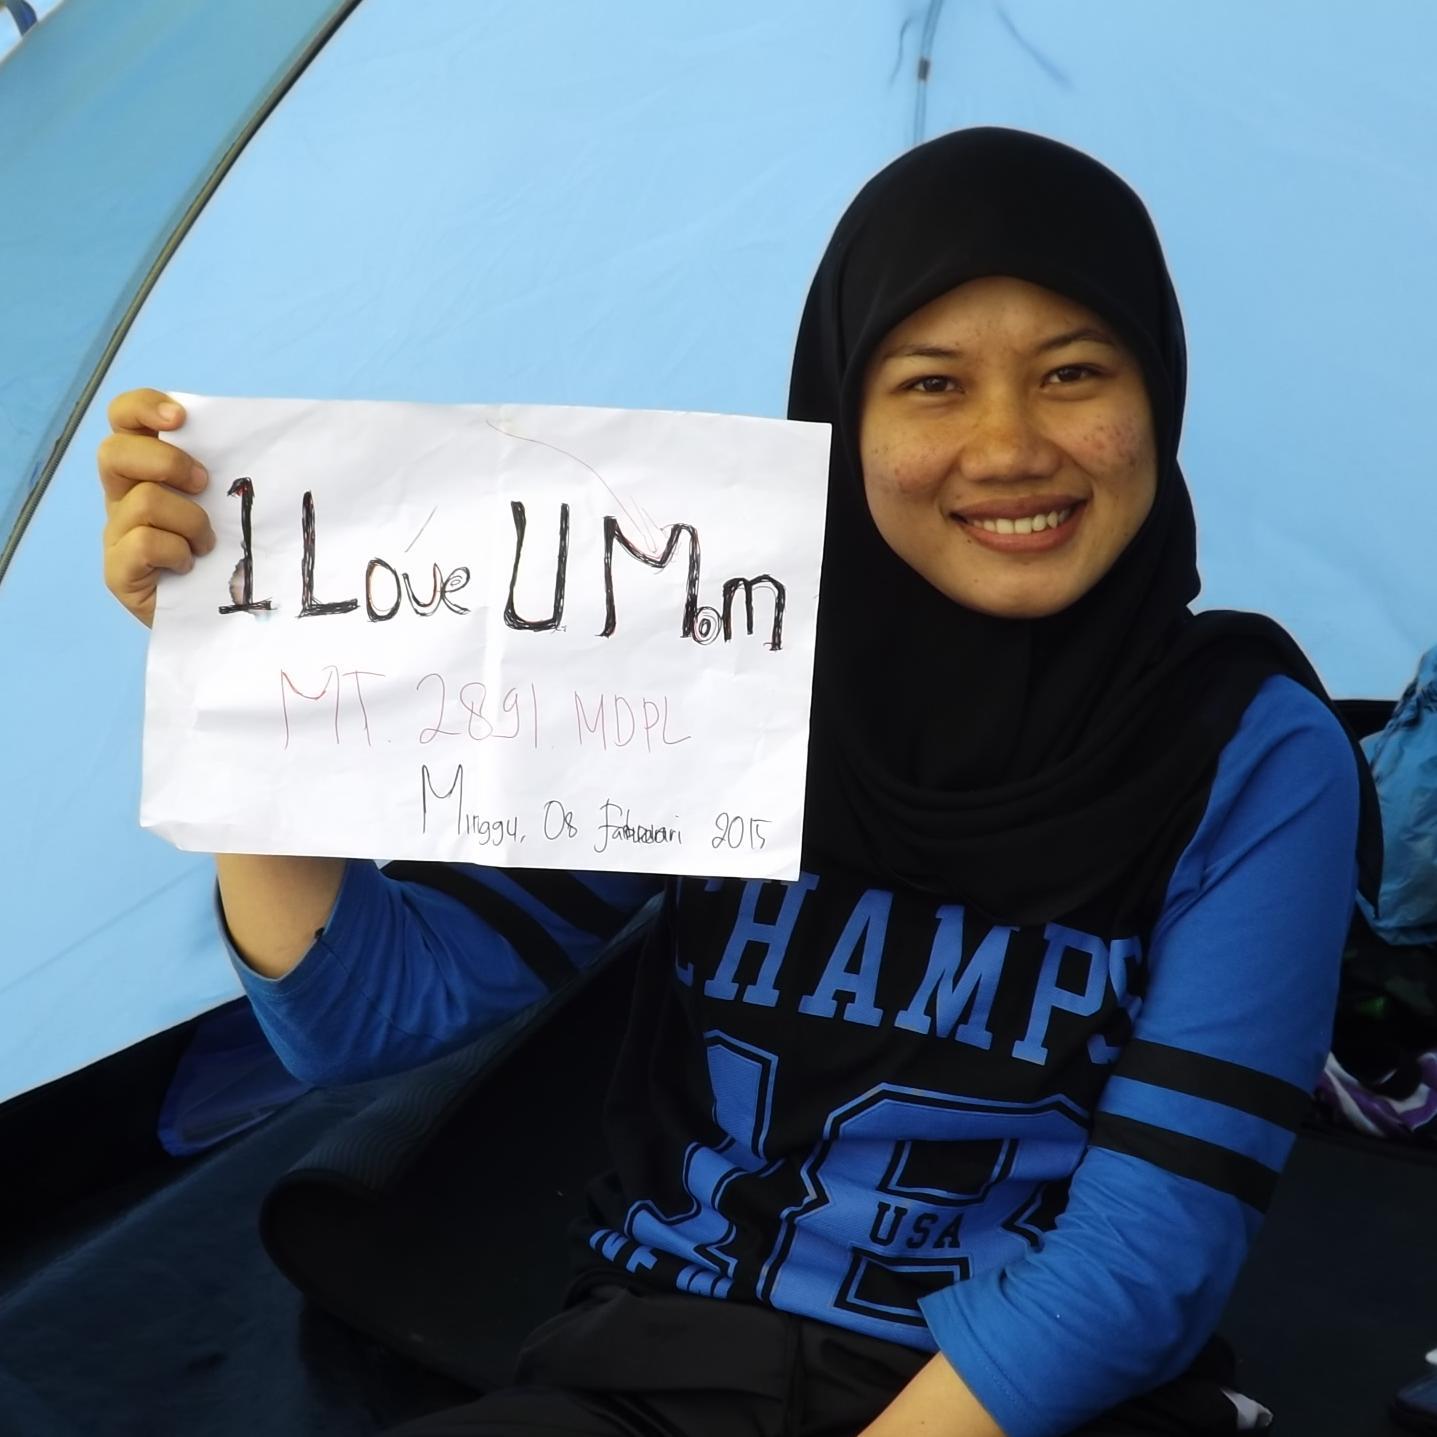 I Love U Mom
MT. 2891. MDPL
Minggu, 08 2015
CHAMPS
18
USA
NEW